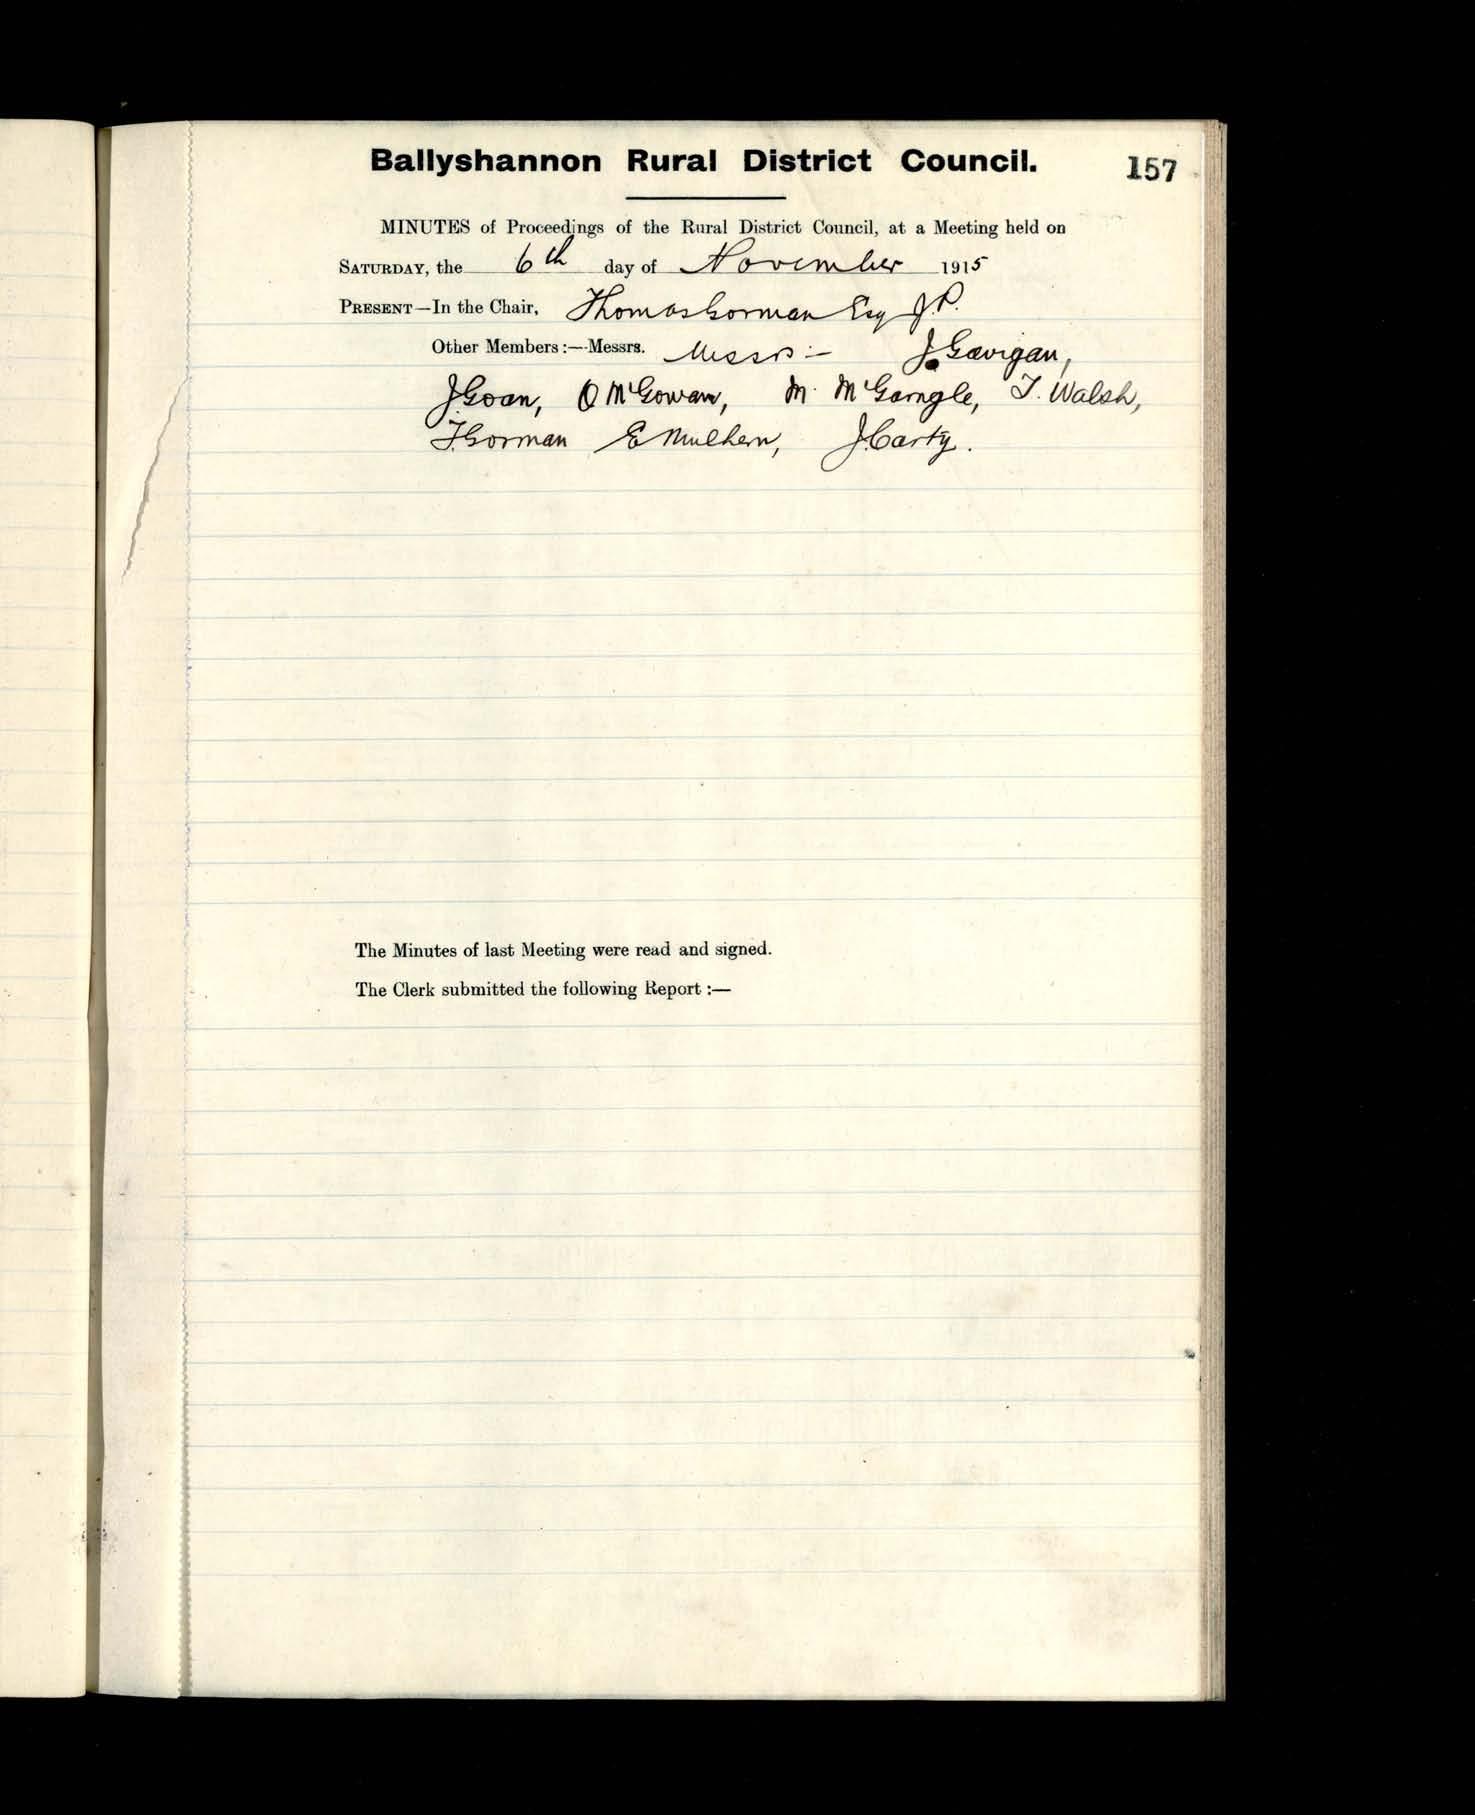 Ballyshannon Rural District Council.
157
MINUTES of Proceedings of the Rural District Council, at a Meeting held on
SATURDAY, the 6th day of November 1915
PRESENT—In the Chair, Thomas Gorman Esq J.P.
Other Members:—Messrs. Messrs:— J. Gavigan,
J Goan, O McGowan, M. McGarngle, T. Walsh,
T. Gorman E Mulhern, J. Carty.
The Minutes of last Meeting were read and signed.
The Clerk submitted the following Report :—